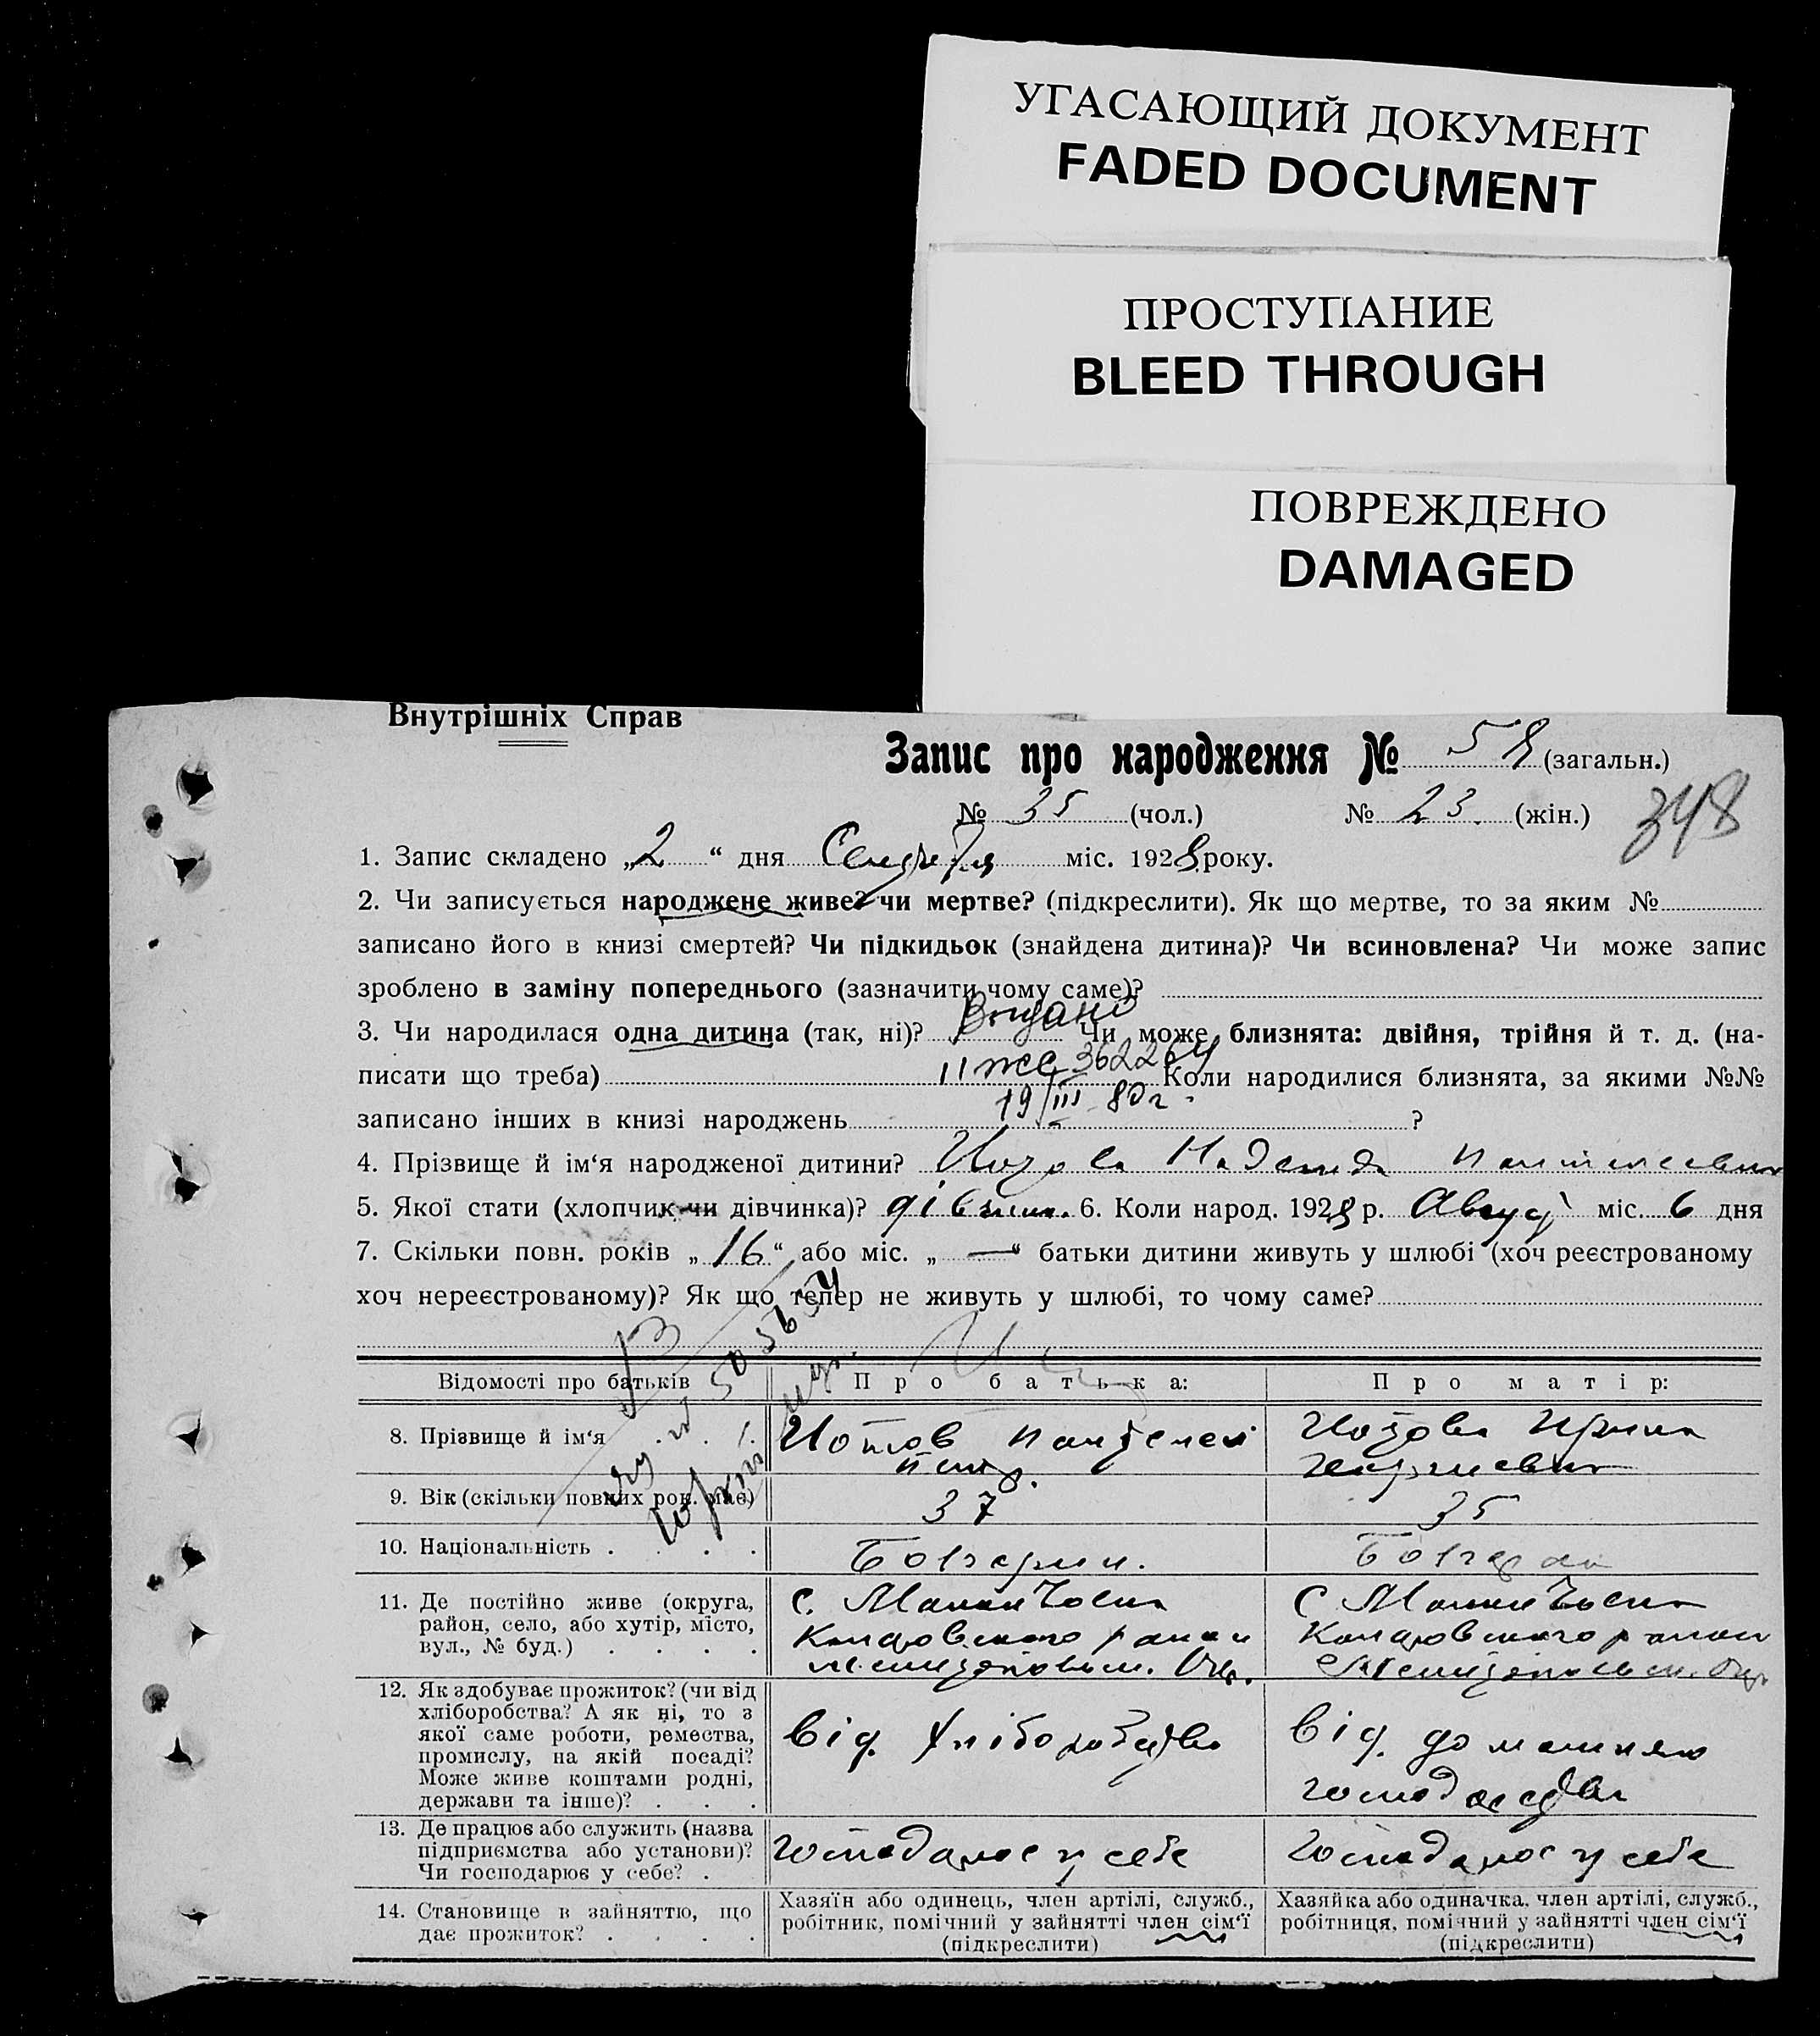 УГАСАЮЩИЙ ДОКУМЕНТ
FADED DOCUMENT
ПРОСТУПАНИЕ
BLEED THROUGH
ПОВРЕЖДЕНО
DAMAGED
Внутрішніх Справ
Запис про народження № 58 (загальн.)
№ 35 (чол.) № 23. (жін.)
348
1. Запис складено „2“ дня Сентября міс. 1928 року.
2. Чи записується народжене живе? чи мертве? (підкреслити). Як що мертве, то за яким №
записано його в книзі смертей? Чи підкидьок (знайдена дитина)? Чи всиновлена? Чи може запис
зроблено в заміну попереднього (зазначити чому саме)?
3. Чи народилася одна дитина (так, ні)? Выдано Чи може близнята: двійня, трійня й т. д. (на-
писати що треба) 362264 Коли народилися близнята, за якими №№
19/III-80г.
записано інших в книзі народжень ?
4. Прізвище й ім‘я народженої дитини? Иотова Надежда
5. Якої стати (хлопчик чи дівчинка)? дівчин. 6. Коли народ. 1928 р. Август міс. 6 дня
7. Скільки повн. років „16“ або міс. „—“ батьки дитини живуть у шлюбі (хоч реєстрованому
хоч нереєстрованому)? Як що тепер не живуть у шлюбі, то чому саме?
Відомості про батьків Про батька: Про матір:
8. Прізвище й ім‘я Иотов Пантелей Иотова Ирина
Георгиевна
9. Вік (скільки повних рок. має) 37 35
10. Національність . . . . Болгарин. Болгарка
11. Де постійно живе (округа, район, село, або хутір, місто, вул., № буд.) . . . .
С.
района
Окр.
С
района
Окр.
12. Як здобуває прожиток? (чи від хліборобства? А як ні, то з якої саме роботи, ремества, промислу, на якій посаді? Може живе коштами родні, держави та інше)? . . .
від. хліборобства
від. домашняго
господарства
13. Де працює або служить (назва підприємства або установи)? Чи господарює у себе? .
господарює у себе
господарює у себе
14. Становище в зайняттю, що дає прожиток? . . . .
Хазяїн або одинець, член артілі, служб., робітник, помічний у зайнятті член сім‘ї (підкреслити)
Хазяйка або одиначка, член артілі, служб., робітниця, помічний у зайнятті член сім‘ї (підкреслити)